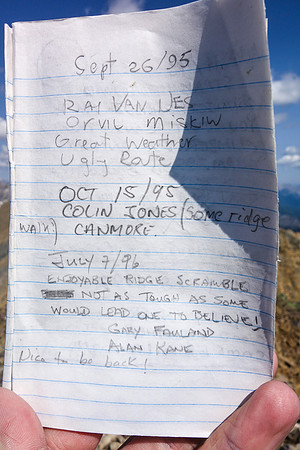 Sept 26/95
RAI VAN NES
ORVIL MISKIW
Great Weather
Ugly Route
OCT 15/95
COLIN JONES (SOME ridge
WALK!) CANMORE.
July 7/96
ENJOYABLE RIDGE SCRAMBLE
NOT AS TOUGH AS SOME
WOULD LEAD ONE TO BELIEVE!
GARY FAULAND
ALAN KANE
Nice to be back!